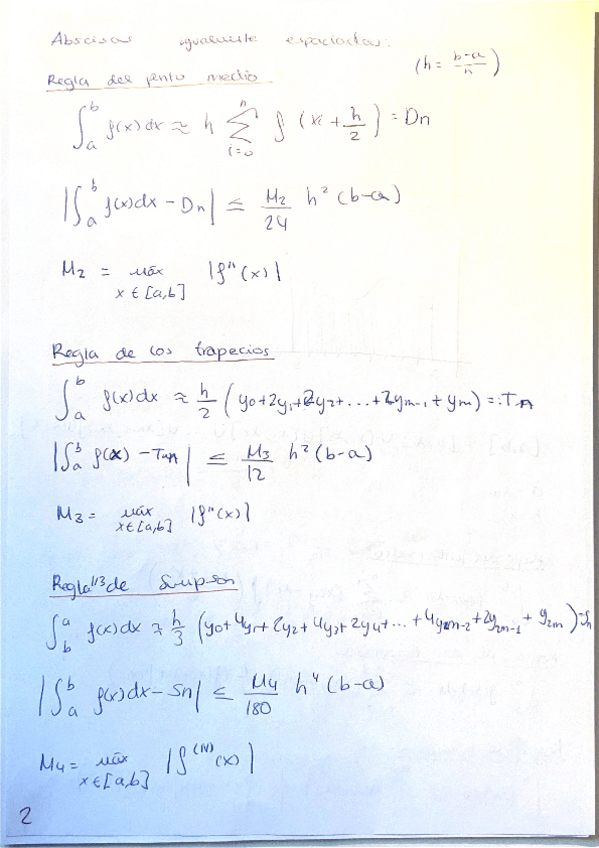 Abscisas igualmente espaciadas.
(h = \frac{b-a}{n})
Regla del punto medio
\int_a^b f(x)dx ≈ h \sum_{i=0}^{n} f(x_i + \frac{h}{2}) = Dn
|\int_a^b f(x)dx - Dn| ≤ \frac{M_2}{24} h^2 (b-a)
M_2 = máx_{x∈[a,b]} |f''(x)|
Regla de los trapecios
\int_a^b f(x)dx ≈ \frac{h}{2} (y_0+2y_1+2y_2+...+2y_{m-1}+y_m) =: T_n
|\int_a^b f(x) - T_n| ≤ \frac{M_3}{12} h^2 (b-a)
M_3 = máx_{x∈[a,b]} |f''(x)|
Regla 1/3 de Simpson
\int_b^a f(x)dx ≈ \frac{h}{3} (y_0+4y_1+2y_2+4y_3+2y_4+...+4y_{2m-2}+2y_{2m-1}+y_{2m}) = S_n
|\int_a^b f(x)dx - Sn| ≤ \frac{M_4}{180} h^4 (b-a)
M_4 = máx_{x∈[a,b]} |f^{(IV)}(x)|
2